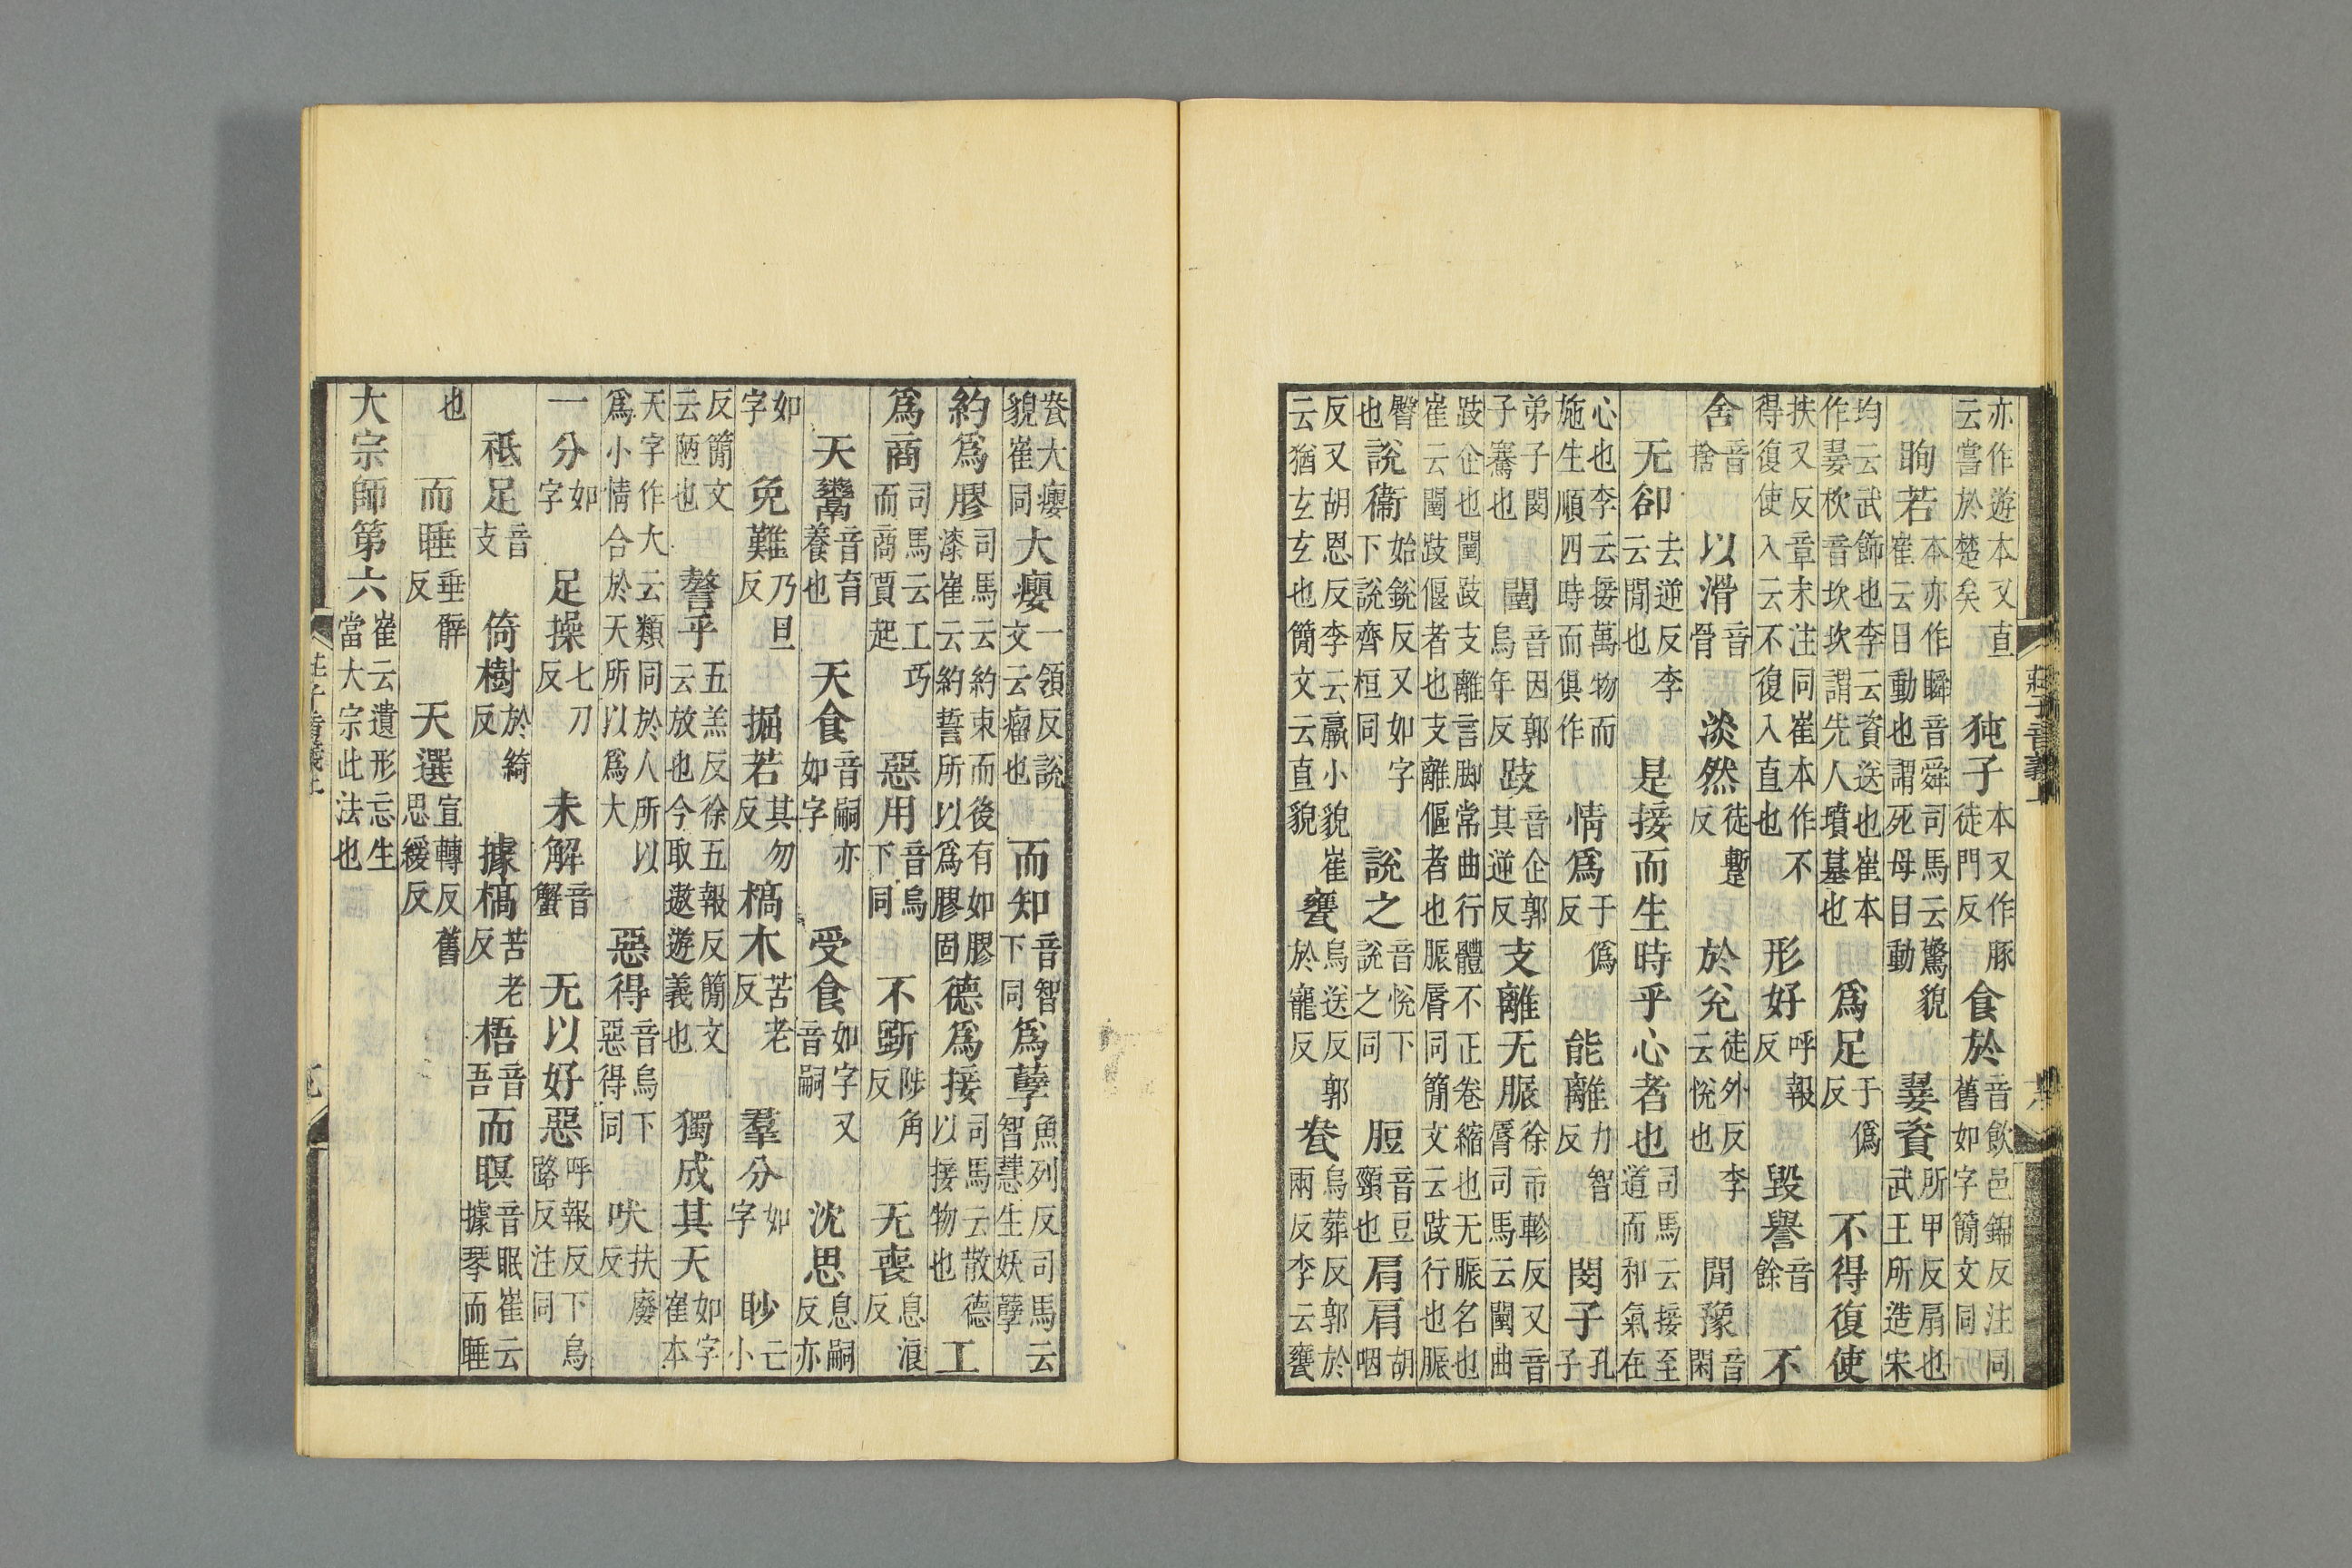 亦作遊本又直云嘗於楚矣㹠子本又作豚徒門反食於音飲邑錦反注同舊如字簡文同所
眴若本亦作瞬音舜司馬云驚貌崔云目動也謂死母目動翣資所甲反扇也武王所造宋
均云武飾也李云資送也崔本作翣枚音坎坎謂先人墳墓也爲足于僞反不得復使
扶又反章末注同崔本作不得復使入云不復入直也形好呼報反毀譽音餘不
舍音捨以滑音骨淡然徒蹔反於兊徒外反李云悅也閒豫音閑
无卻去逆反李云閒也是接而生時乎心者也司馬云接至道而和氣在
心也李云接萬物而施生順四時而俱作情爲于僞反能離力智反閔子孔子
弟子閔子騫也闉音因郭烏年反跂音企郭其逆反支離无脤徐市軫反又音脣司馬云闉曲
跂企也闉跂支離言脚常曲行體不正卷縮也无脤名也崔云闉跂偃者也支離傴者也脤脣同簡文云跂行也脤
臀也說衞始銳反又如字下說齊桓同說之音悅下說之同脰音豆頸也肩肩胡咽
反又胡恩反李云羸小貌崔云猶玄玄也簡文云直貌甕烏送反郭於寵反㼜烏葬反郭於兩反李云甕
㼜大癭貌崔同大癭一領反說文云瘤也而知音智下同爲孽魚列反司馬云智慧生妖孽
約爲膠司馬云約束而後有如膠漆崔云約誓所以爲膠固德爲接司馬云散德以接物也工
爲商司馬云工巧而商賈起惡用音烏下同不斲陟角反无喪息浪反
天鬻音育養也天食音嗣亦如字受食如字又音嗣沈思息嗣反亦
如字免難乃旦反掘若其勿反槁木苦老反羣分如字眇亡小
反簡文云陋也謷乎五羔反徐五報反簡文云放也今取遨遊義也獨成其天如字崔本
天字作大云類同於人所以爲小情合於天所以爲大惡得音烏下惡得同吠扶廢反
一分如字足操七刀反未解音蟹无以好惡呼報反下烏路反注同
祗足音支倚樹於綺反據槁苦老反梧音吾而瞑音眠崔云據琴而睡
也而睡垂辭反天選宣轉反舊思緩反
大宗師第六崔云遺形忘生當大宗此法也
莊子音義上